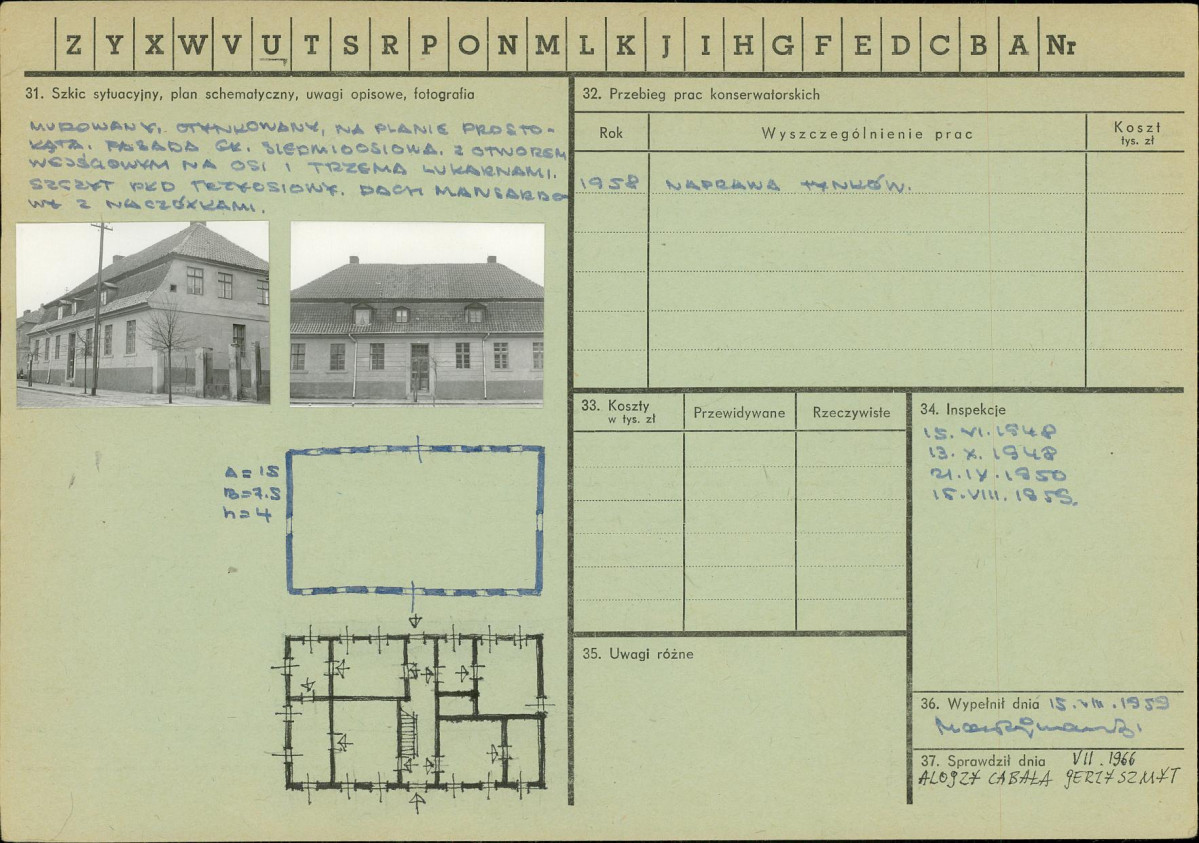 Z Y X W V U T S R P O N M L K J I H G F E D C B A Nr
31. Szkic sytuacyjny, plan schematyczny, uwagi opisowe, fotografia
MUROWANY, OTYNKOWANY, NA PLANIE PROSTO-
KĄTA. FASADA GŁ. SIEDMIOOSIOWA. Z OTWOREM
WEJŚCIOWYM NA OSI I TRZEMA LUKARNAMI.
SZCZYT PŁD TRZYOSIOWY. DACH MANSARDO
WY Z NACZÓŁKAMI.
A = 15
B = 7.5
h = 4
32. Przebieg prac konserwatorskich
Rok Wyszczególnienie prac Koszt
tys. zł
1958 NAPRAWA TYNKÓW.
33. Koszty
w tys. zł
Przewidywane Rzeczywiste
34. Inspekcje
15. VI. 1948
13. X. 1948
21. IX. 1950
15. VIII. 1959.
35. Uwagi różne
36. Wypełnił dnia 15. VIII. 1959
37. Sprawdził dnia VII. 1966
ALOJZY CABAŁA JERZY SZMYT